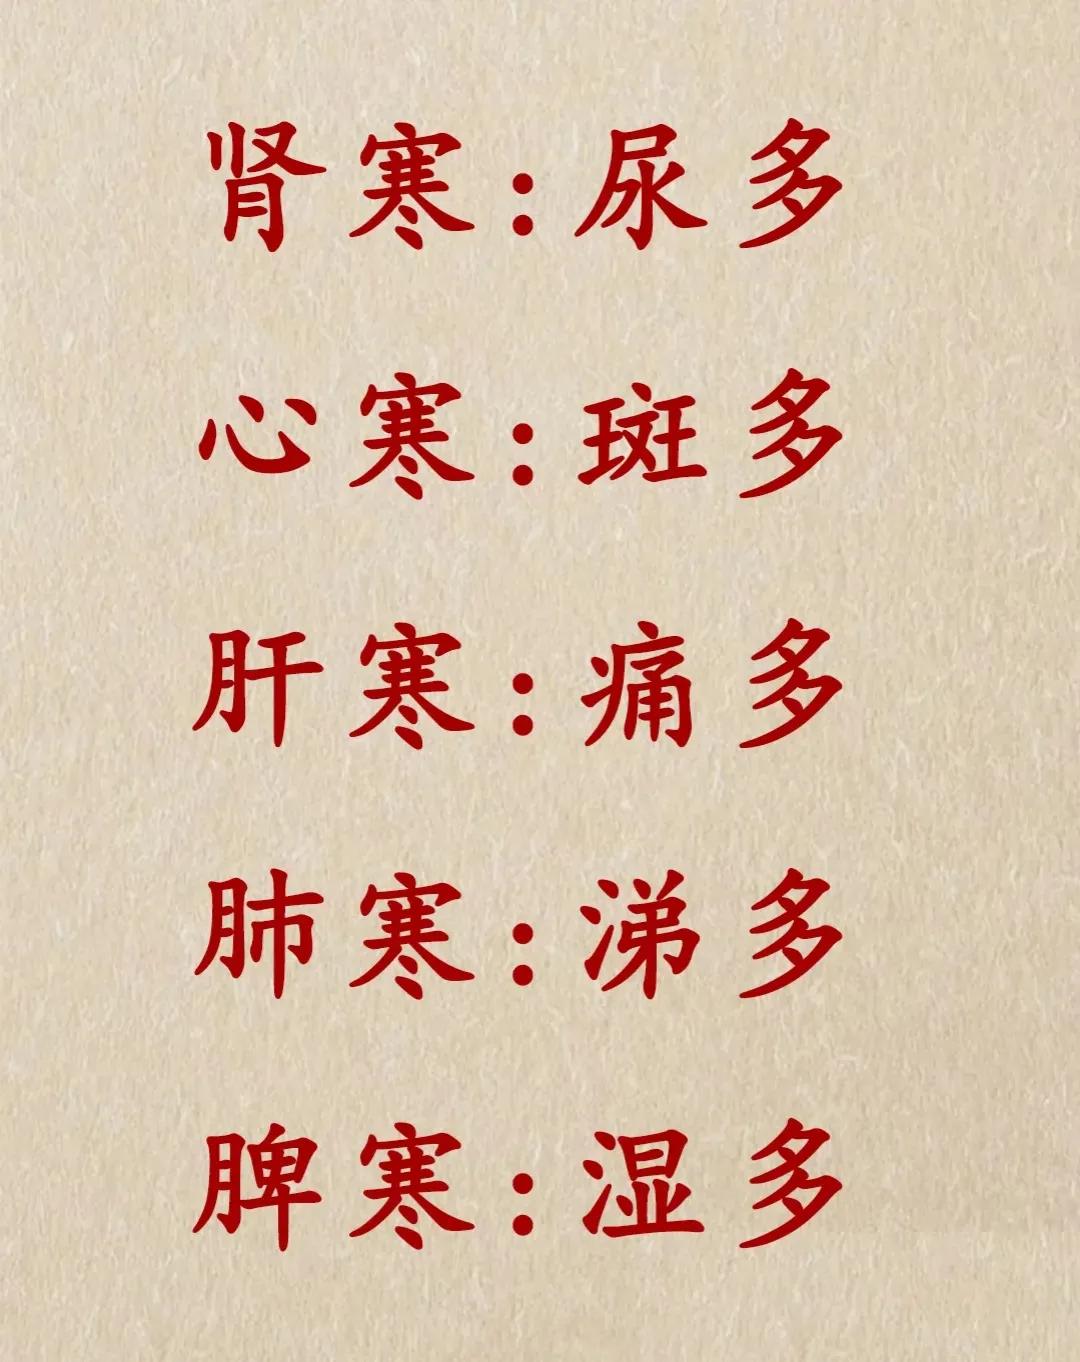 肾寒:尿多
心寒:斑多
肝寒:痛多
肺寒:涕多
脾寒:湿多